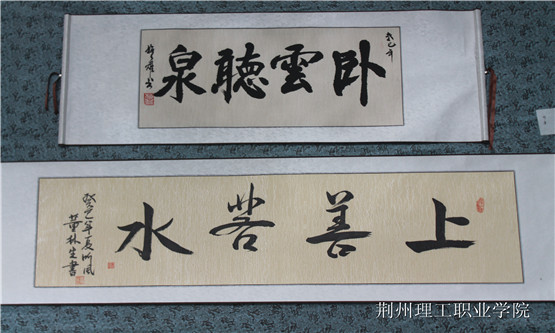 癸巳年
卧雲聽泉
上善若水
癸巳年夏
林生書
荆州理工职业学院